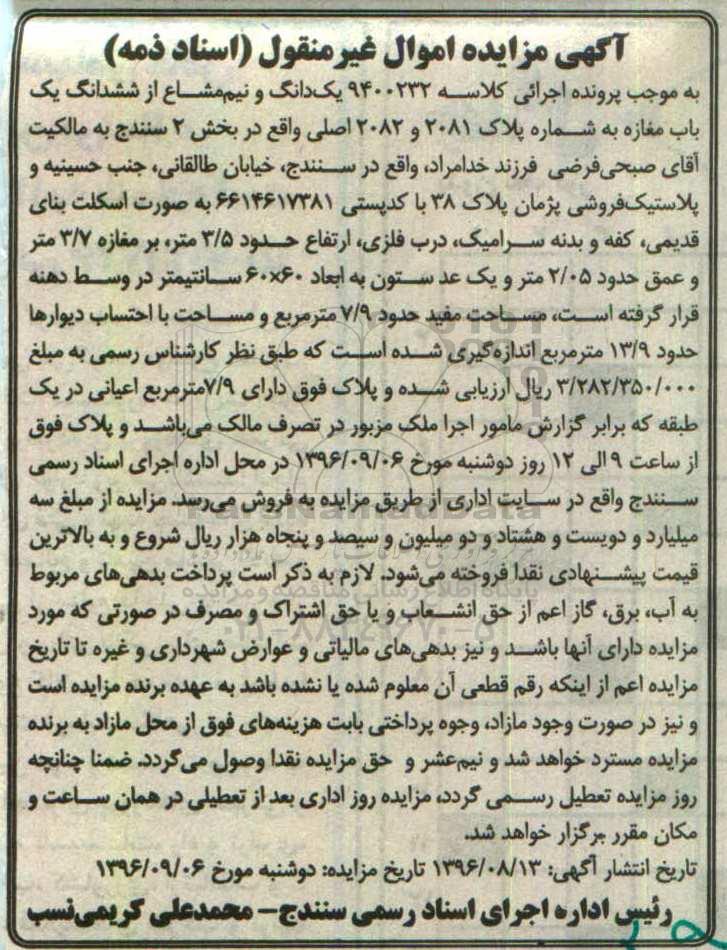 آگهی مزایده اموال غیرمنقول (اسناد ذمه)
به موجب پرونده اجرائی کلاسه ۹۴۰۰۲۳۲ یک‌دانگ و نیم‌مشاع از ششدانگ یک
باب مغازه به شماره پلاک ۲۰۸۱ و ۲۰۸۲ اصلی واقع در بخش ۲ سنندج به مالکیت
آقای صبحی‌فرضی فرزند خدامراد، واقع در سنندج، خیابان طالقانی، جنب حسینیه و
پلاستیک‌فروشی پژمان پلاک ۳۸ با کدپستی ۶۶۱۴۶۱۷۳۸۱ به صورت اسکلت بنای
قدیمی، کفه و بدنه سرامیک، درب فلزی، ارتفاع حدود ۳/۵ متر، بر مغازه ۳/۷ متر
و عمق حدود ۲/۰۵ متر و یک عد ستون به ابعاد ۶۰×۶۰ سانتیمتر در وسط دهنه
قرار گرفته است، مساحت مفید حدود ۷/۹ مترمربع و مساحت با احتساب دیوارها
حدود ۱۳/۹ مترمربع اندازه‌گیری شده است که طبق نظر کارشناس رسمی به مبلغ
۳/۲۸۲/۳۵۰/۰۰۰ ریال ارزیابی شده و پلاک فوق دارای ۷/۹مترمربع اعیانی در یک
طبقه که برابر گزارش مامور اجرا ملک مزبور در تصرف مالک می‌باشد و پلاک فوق
از ساعت ۹ الی ۱۲ روز دوشنبه مورخ ۱۳۹۶/۰۹/۰۶ در محل اداره اجرای اسناد رسمی
سنندج واقع در سایت اداری از طریق مزایده به فروش می‌رسد. مزایده از مبلغ سه
میلیارد و دویست و هشتاد و دو میلیون و سیصد و پنجاه هزار ریال شروع و به بالاترین
قیمت پیشنهادی نقدا فروخته می‌شود. لازم به ذکر است پرداخت بدهی‌های مربوط
به آب، برق، گاز اعم از حق انشعاب و یا حق اشتراک و مصرف در صورتی که مورد
مزایده دارای آنها باشد و نیز بدهی‌های مالیاتی و عوارض شهرداری و غیره تا تاریخ
مزایده اعم از اینکه رقم قطعی آن معلوم شده یا نشده باشد به عهده برنده مزایده است
و نیز در صورت وجود مازاد، وجوه پرداختی بابت هزینه‌های فوق از محل مازاد به برنده
مزایده مسترد خواهد شد و نیم‌عشر و حق مزایده نقدا وصول می‌گردد. ضمنا چنانچه
روز مزایده تعطیل رسمی گردد، مزایده روز اداری بعد از تعطیلی در همان ساعت و
مکان مقرر برگزار خواهد شد.
تاریخ انتشار آگهی: ۱۳۹۶/۰۸/۱۳ تاریخ مزایده: دوشنبه مورخ ۱۳۹۶/۰۹/۰۶
رئیس اداره اجرای اسناد رسمی سنندج- محمدعلی کریمی‌نسب